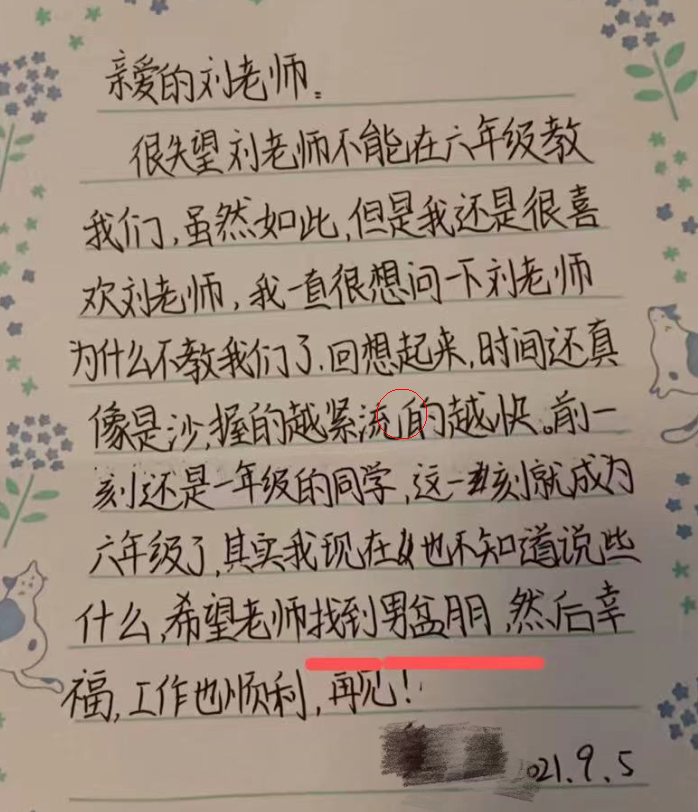 亲爱的刘老师：
很失望刘老师不能在六年级教
我们，虽然如此，但是我还是很喜
欢刘老师，我一直很想问一下刘老师
为什么不教我们了.回想起来，时间还真
像是沙，握的越紧流的越快。前一
刻还是一年级的同学，这一刻就成为
六年级了，其实我现在也不知道说些
什么，希望老师找到男盆朋，然后幸
福，工作也顺利，再见！
021.9.5